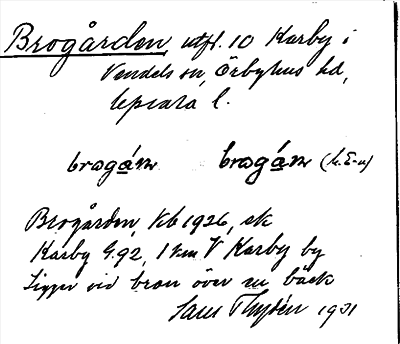 Brogården utfl. 10 Karby i
Vendels sn, Örbyhus hd,
Uppsala l.
brogán, brogán,
Brogården, Kb 1926, ek
Karby G.92, 1 km V Karby by
Ligger vid bron över en bäck
1931